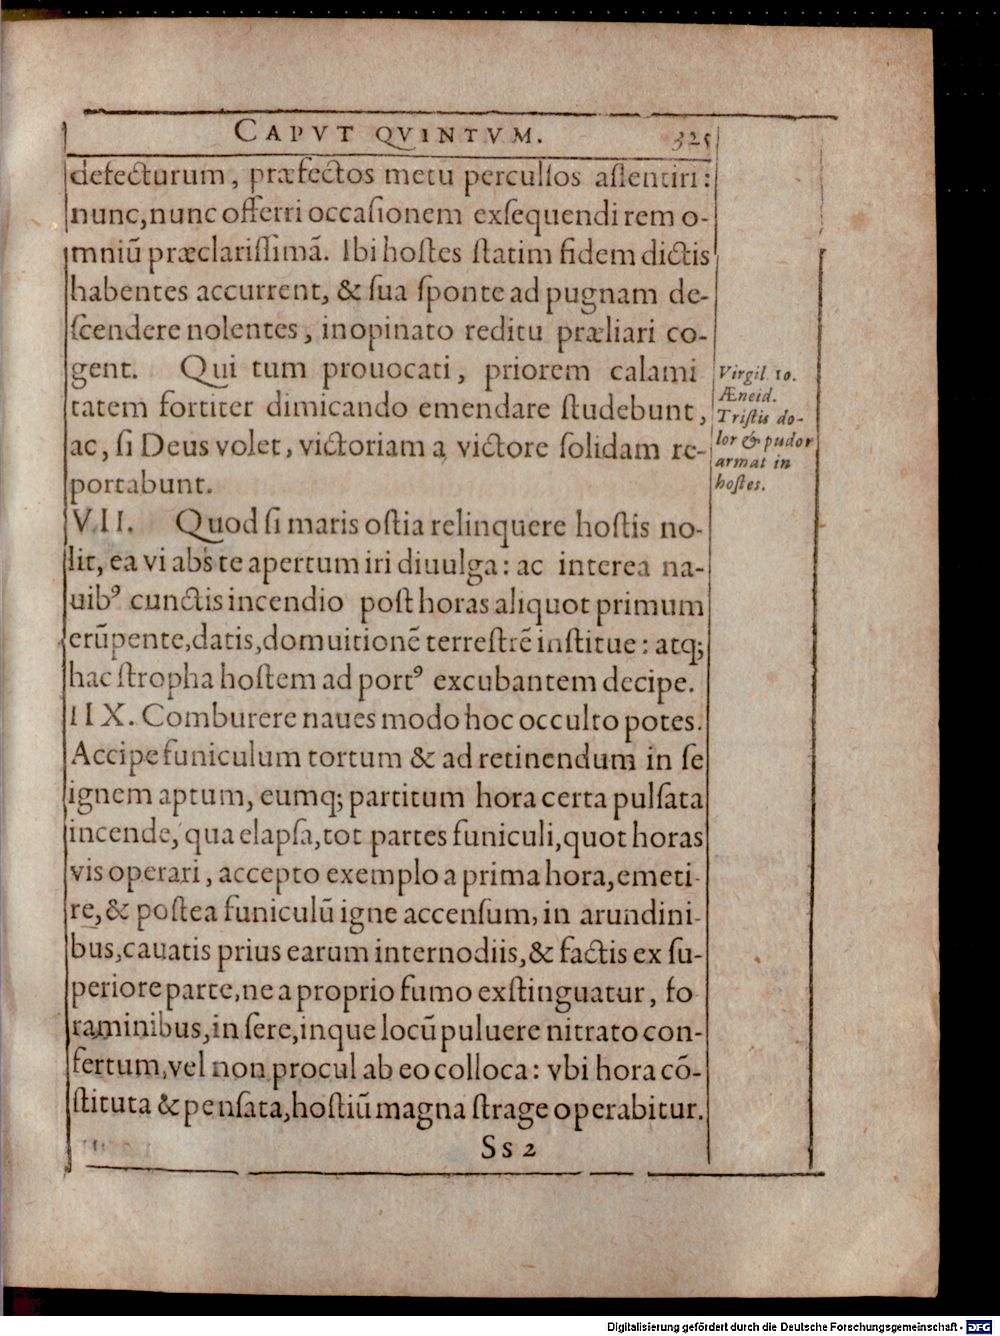 CAPVT QVINTVM. 325
defecturum, præfectos metu perculsos assentiri:
nunc, nunc offerri occasionem exsequendi rem o-
mniũ præclarissimã. Ibi hostes statim fidem dictis
habentes accurrent, & sua sponte ad pugnam de-
scendere nolentes, inopinato reditu præliari co-
gent. Qui tum prouocati, priorem calami
tatem fortiter dimicando emendare studebunt,
ac, si Deus volet, victoriam a victore solidam re-
portabunt.
Virgil. 10.
Æneid.
Tristis do-
lor & pudor
armat in
hostes.
VII. Quod si maris ostia relinquere hostis no-
lit, ea vi abs te apertum iri diuulga: ac interea na-
uibꝰ cunctis incendio post horas aliquot primum
erũpente, datis, domuitionẽ terrestrẽ institue: atq;
hac stropha hostem ad portꝰ excubantem decipe.
IIX. Comburere naues modo hoc occulto potes.
Accipe funiculum tortum & ad retinendum in se
ignem aptum, eumq; partitum hora certa pulsata
incende, qua elapsa, tot partes funiculi, quot horas
vis operari, accepto exemplo a prima hora, emeti-
re, & postea funiculũ igne accensum, in arundini-
bus, cauatis prius earum internodiis, & factis ex su-
periore parte, ne a proprio fumo exstinguatur, fo
raminibus, in sere, inque locũ puluere nitrato con-
fertum, vel non procul ab eo colloca: vbi hora cõ-
stituta & pensata, hostiũ magna strage operabitur.
Ss 2
Digitalisierung gefördert durch die Deutsche Forschungsgemeinschaft - DFG